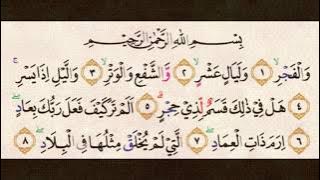 بِسْمِ اللّٰهِ الرَّحْمٰنِ الرَّحِيْمِ
وَالْفَجْرِۙ ١ وَلَيَالٍ عَشْرٍۙ ٢ وَّالشَّفْعِ وَالْوَتْرِۙ ٣ وَالَّيْلِ اِذَا يَسْرِۚ
٤ هَلْ فِيْ ذٰلِكَ قَسَمٌ لِّذِيْ حِجْرٍۗ ٥ اَلَمْ تَرَ كَيْفَ فَعَلَ رَبُّكَ بِعَادٍۖ
٦ اِرَمَ ذَاتِ الْعِمَادِۖ ٧ الَّتِيْ لَمْ يُخْلَقْ مِثْلُهَا فِى الْبِلَادِۖ ٨